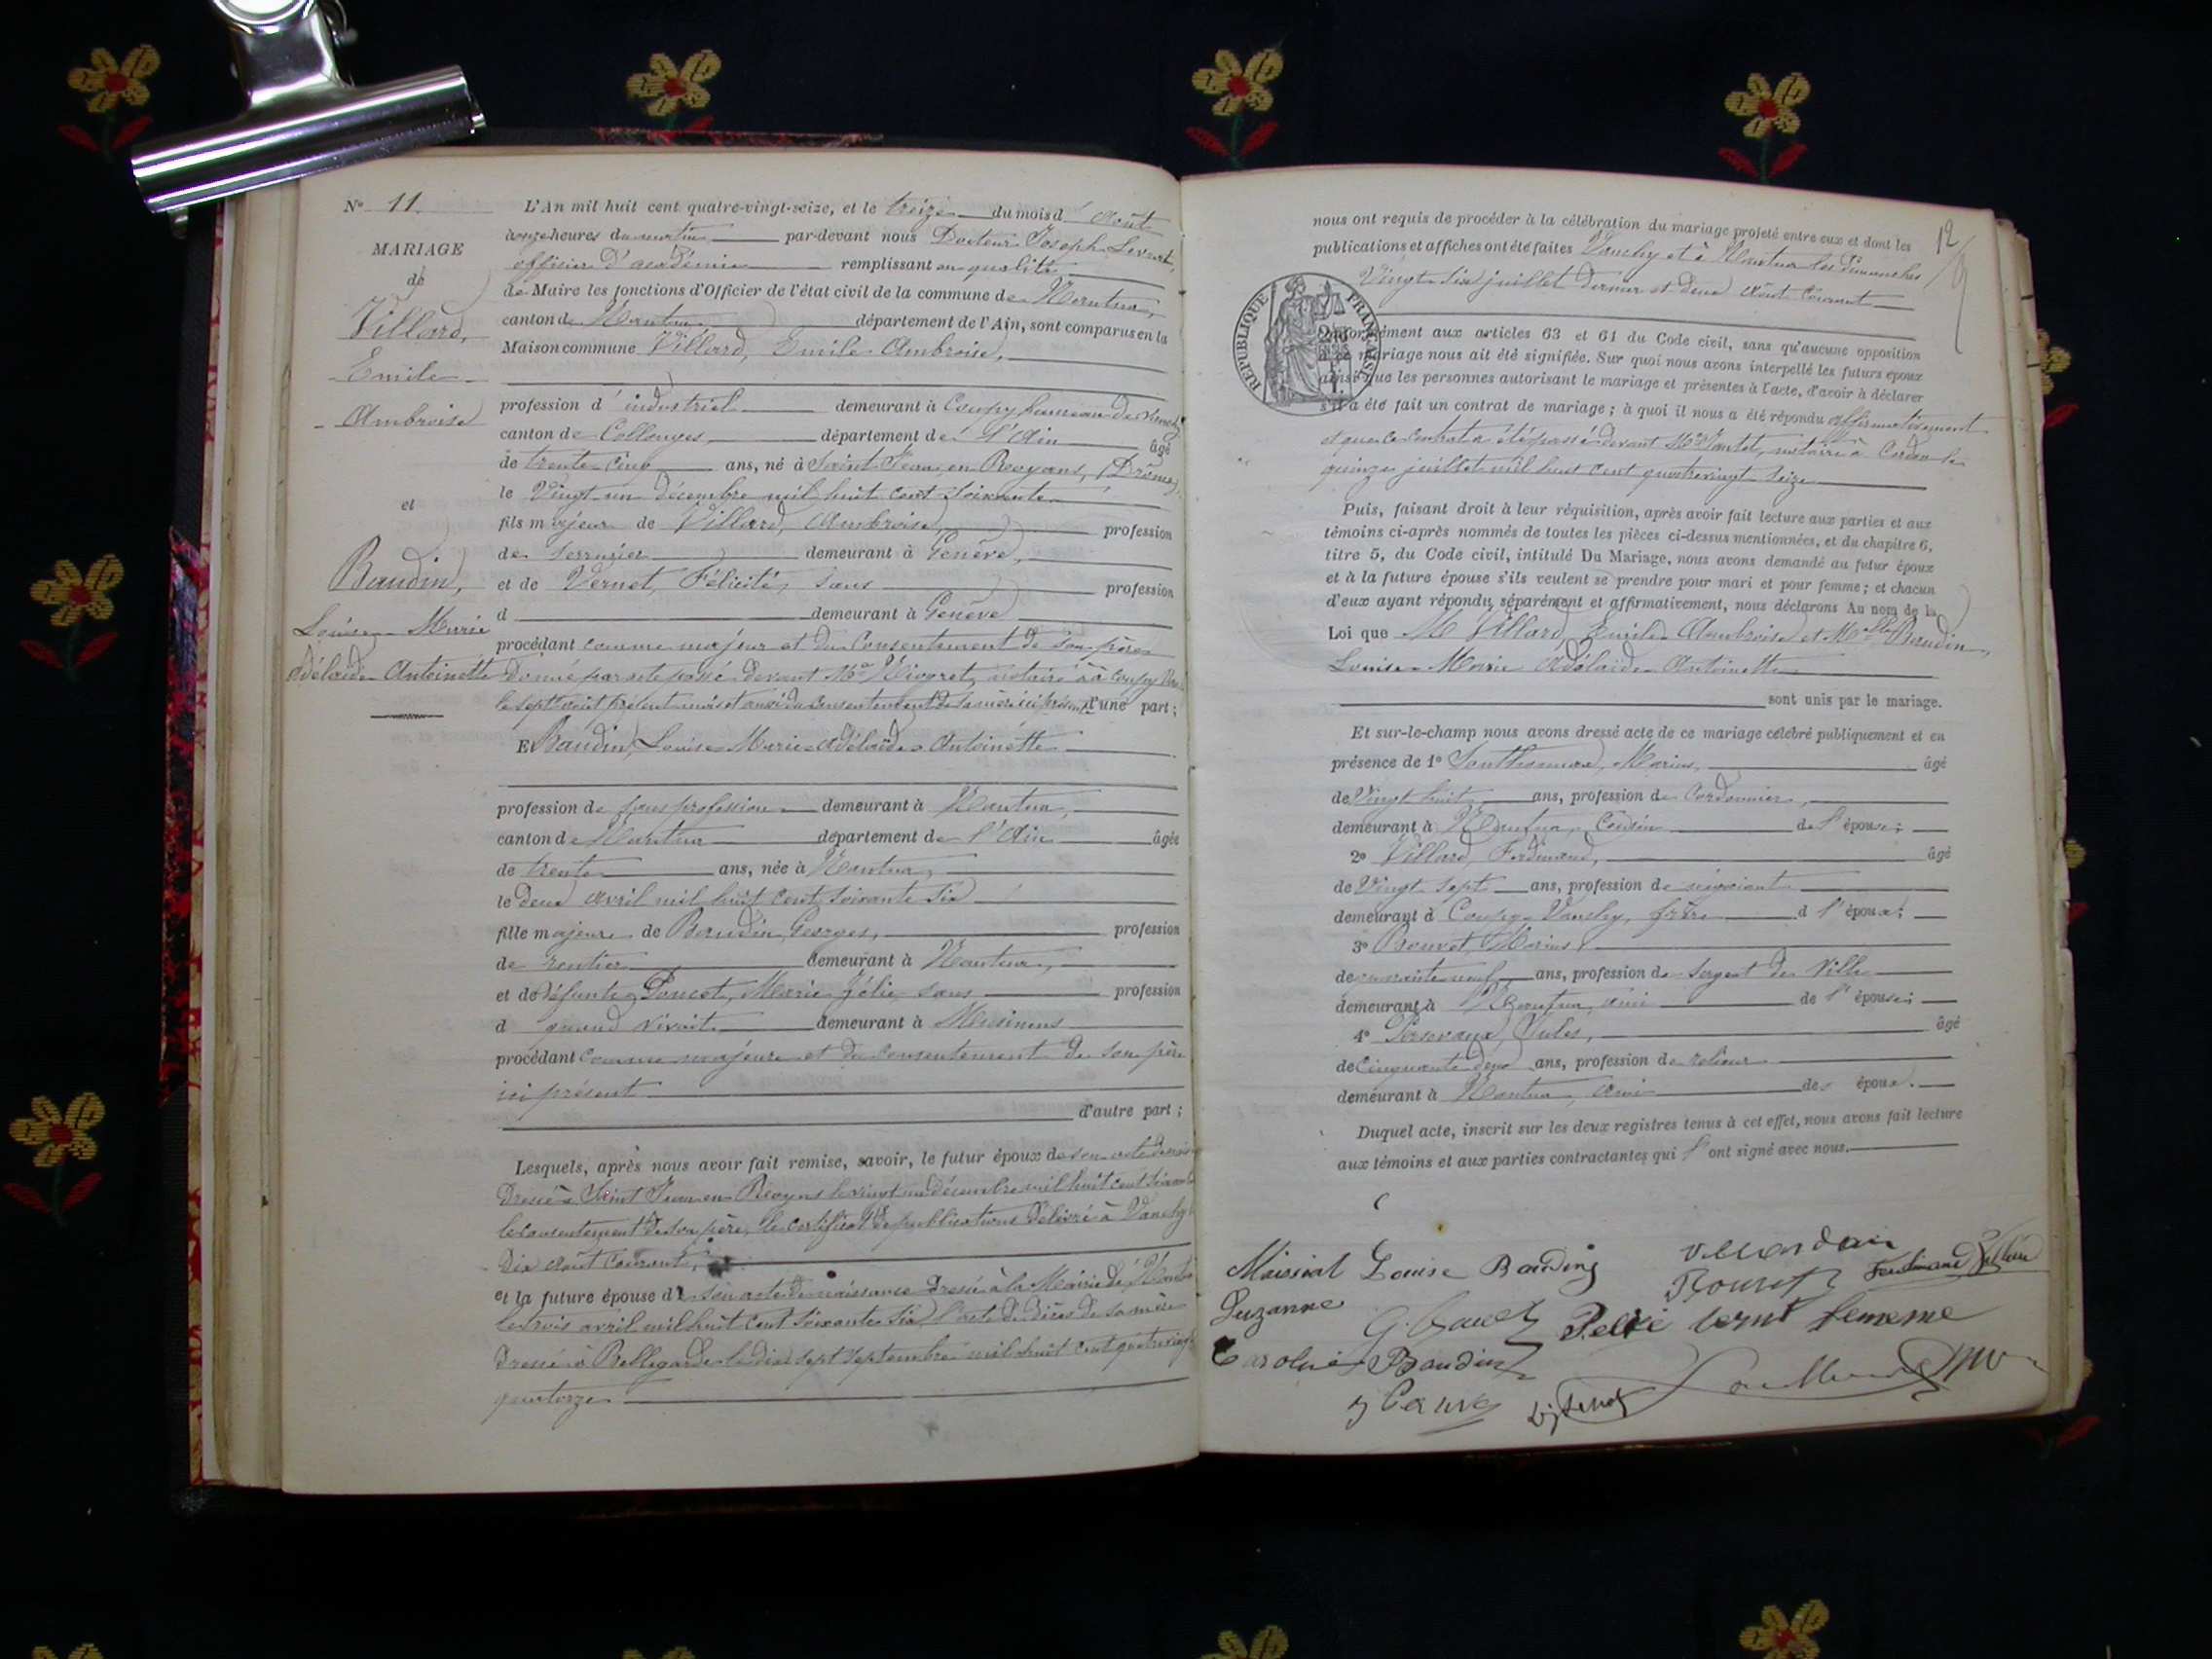 N° 11.
MARIAGE
de
Villard,
Emile
Ambroise
et
Baudin,
Louise Marie
Adélaïde Antoinette
L'An mil huit cent quatre-vingt-seize, et le treize du mois d'Août
onze heures du matin par-devant nous Docteur Joseph Levrat,
officier d'académie remplissant en qualité
de Maire les fonctions d'Officier de l'état civil de la commune de Nantua,
canton de Nantua département de l'Ain, sont comparus en la
Maison commune Villard, Emile Ambroise,
profession d'industriel demeurant à Coupy hameau de Vanchy
canton de Collonges département de l'Ain âgé
de trente cinq ans, né à Saint Jean en Royans, (Drôme),
le Vingt un Décembre mil huit cent soixante
fils majeur de Villard, Ambroise, profession
de serrurier demeurant à Genève,
et de Vernet, Félicité, sans profession
d demeurant à Genève
procédant comme majeur et du Consentement de son père
Donné par acte passé devant Me notaire à Coupy
le sept août présent mois et aussi du consentement de sa mère ici présente d'une part;
Et Baudin, Louise Marie Adélaïde Antoinette
profession de sans profession demeurant à Nantua,
canton de Nantua département de l'Ain âgée
de trente ans, née à Nantua,
le Deux avril mil huit cent soixante six
fille majeure de Baudin Georges, profession
de rentier demeurant à Nantua,
et de Défunte Poncet, Marie Félie, sans profession
d quand vivait demeurant à Musinens
procédant comme majeure et du consentement de son père
ici présent
d'autre part;
Lesquels, après nous avoir fait remise, savoir, le futur époux de son acte de naissance
Dressé à Saint Jean en Royans le vingt un décembre mil huit cent soixante
le consentement de son père, le certificat de publications délivré à Vanchy le
Dix août courant,
et la future épouse de son acte de naissance Dressé à la Mairie de Nantua
le trois avril mil huit cent soixante six, l'acte de décès de sa mère
Dressé à Bellegarde le dix sept septembre mil huit cent quatre vingt
quatorze
12
nous ont requis de procéder à la célébration du mariage projeté entre eux et dont les
publications et affiches ont été faites Vanchy et à Nantua les Dimanches
Vingt six juillet dernier et deux août courant
REPUBLIQUE FRANÇAISE
conformément aux articles 63 et 64 du Code civil, sans qu'aucune opposition
à ce mariage nous ait été signifiée. Sur quoi nous avons interpellé les futurs époux
ainsi que les personnes autorisant le mariage et présentes à l'acte, d'avoir à déclarer
s'il a été fait un contrat de mariage; à quoi il nous a été répondu affirmativement
et que ce contrat a été passé devant Me Jantet, notaire à Cerdon le
quinze juillet mil huit cent quatre vingt seize
Puis, faisant droit à leur réquisition, après avoir fait lecture aux parties et aux
témoins ci-après nommés de toutes les pièces ci-dessus mentionnées, et du chapitre 6,
titre 5, du Code civil, intitulé Du Mariage, nous avons demandé au futur époux
et à la future épouse s'ils veulent se prendre pour mari et pour femme; et chacun
d'eux ayant répondu séparément et affirmativement, nous déclarons Au nom de la
Loi que M Villard, Emile Ambroise et Melle Baudin,
Louise Marie Adélaïde Antoinette
sont unis par le mariage.
Et sur-le-champ nous avons dressé acte de ce mariage célébré publiquement et en
présence de 1° Marius, âgé
de Vingt huit ans, profession de Cordonnier,
demeurant à Nantua, Cousin de l'épouse;
2° Villard, Ferdinand, âgé
de Vingt sept ans, profession de négociant
demeurant à Coupy Vanchy, frère d l'époux;
3° Bouvet, Marius,
de quarante neuf ans, profession de Sergent de Ville
demeurant à Nantua, ami de l'épouse;
4° Jules, âgé
de Cinquante deux ans, profession de relieur
demeurant à Nantua, ami des époux.
Duquel acte, inscrit sur les deux registres tenus à cet effet, nous avons fait lecture
aux témoins et aux parties contractantes qui l'ont signé avec nous.
Louise Baudin
Suzanne
Ferdinand Villard
Caroline Baudin
femme